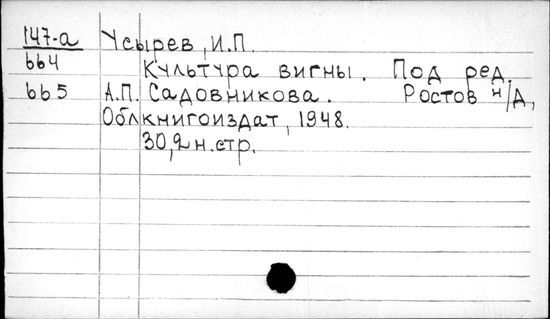 147-а Усырев, И.П.
664 Культура вигны. Под ред.
665 А.П. Садовникова. Ростов н/Д,
Облкнигоиздат, 1948.
30,2 н.стр.